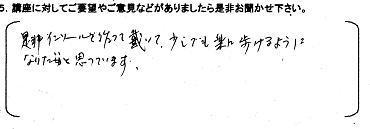 5. 講座に対してご要望やご意見などがありましたら是非お聞かせ下さい。
是非インソールを作って戴いて、少しでも楽に歩けるように
なりた都と思っています。